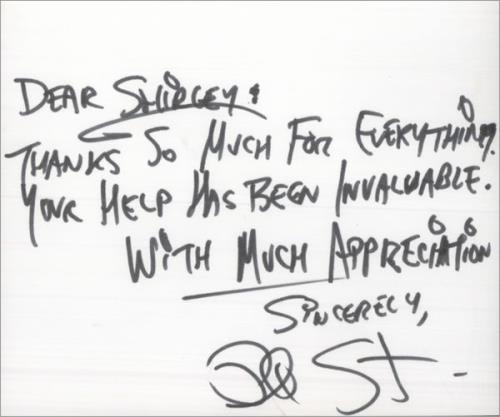 DEAR SHIRLEY:
THANKS SO MUCH FOR EVERYTHING.
YOUR HELP HAS BEEN INVALUABLE.
WITH MUCH APPRECIATION
SINCERELY,